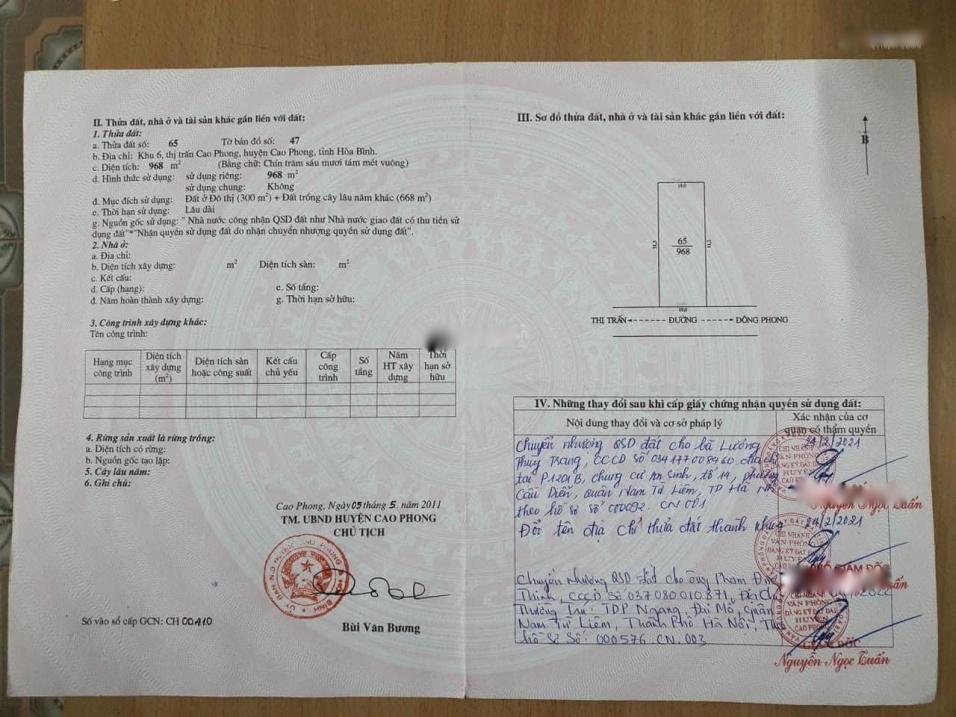 II. Thửa đất, nhà ở và tài sản khác gắn liền với đất:
1. Thửa đất:
a. Thửa đất số: 65 Tờ bản đồ số: 47
b. Địa chỉ: Khu 6, thị trấn Cao Phong, huyện Cao Phong, tỉnh Hòa Bình.
c. Diện tích: 968 m² (Bằng chữ: Chín trăm sáu mươi tám mét vuông)
d. Hình thức sử dụng: sử dụng riêng: 968 m²
sử dụng chung: Không
đ. Mục đích sử dụng: Đất ở Đô thị (300 m²) + Đất trồng cây lâu năm khác (668 m²)
e. Thời hạn sử dụng: Lâu dài
g. Nguồn gốc sử dụng: " Nhà nước công nhận QSD đất như Nhà nước giao đất có thu tiền sử
dụng đất"*"Nhận quyền sử dụng đất do nhận chuyển nhượng quyền sử dụng đất".
2. Nhà ở:
a. Địa chỉ:
b. Diện tích xây dựng: m² Diện tích sàn: m²
c. Kết cấu:
d. Cấp (hạng): e. Số tầng:
đ. Năm hoàn thành xây dựng: g. Thời hạn sở hữu:
3. Công trình xây dựng khác:
Tên công trình:
Hạng mục công trình
Diện tích xây dựng (m²)
Diện tích sàn hoặc công suất
Kết cấu chủ yếu
Cấp công trình
Số tầng
Năm HT xây dựng
Thời hạn sở hữu
4. Rừng sản xuất là rừng trồng:
a. Diện tích có rừng:
b. Nguồn gốc tạo lập:
5. Cây lâu năm:
6. Ghi chú:
Cao Phong, Ngày 05 tháng 5 năm 2011
TM. UBND HUYỆN CAO PHONG
CHỦ TỊCH
Bùi Văn Bương
Số vào sổ cấp GCN: CH 00410
III. Sơ đồ thửa đất, nhà ở và tài sản khác gắn liền với đất:
B
65
968
THỊ TRẤN ĐƯỜNG ĐÔNG PHONG
IV. Những thay đổi sau khi cấp giấy chứng nhận quyền sử dụng đất:
Nội dung thay đổi và cơ sở pháp lý
Xác nhận của cơ quan có thẩm quyền
Chuyển nhượng QSD đất cho bà Lương
Thùy Trang, CCCD Số 034177008960
tại P1201B, chung cư An Sinh, tổ 14, phường
Cầu Diễn, quận Nam Từ Liêm, TP Hà
theo hồ sơ số 000092. CN 001
24/2/2021
Đổi tên địa chỉ thửa đất thành khu
24/2/2021
GIÁM ĐỐC
Chuyển nhượng QSD đất cho ông Phạm
Thịnh, CCCD Số 037080010871, Địa Chỉ
Thường Trú: TDP Ngang, Đại Mỗ, Quận
Nam Từ Liêm, Thành Phố Hà Nội,
hồ sơ Số: 000576.CN.003
Nguyễn Ngọc Tuấn